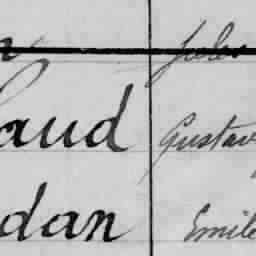 Jules
aud Gustav
dan Emile